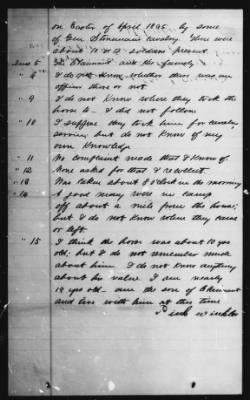 on Easter of April 1865 by some
of Gen Stoneman's cavalry. There were
about 10 or 12 soldiers present.
Ans 5 The Claimant and his family
" 8 I do not know whether there was an
officer there or not
" 9 I do not know where they took the
horse to. I did not follow.
" 10 I suppose they took him for cavalry
service but do not know of my
own knowledge
" 11 No complaint made that I know of
" 12 None asked for that I recollect.
" 13 Was taken about 8 o'clock in the morning
" 14 A good many were in camp
off about a mile from the house;
but I do not know when they came
or left.
" 15 I think the horse was about 10 yrs
old; but I do not remember much
about him. I do not know anything
about his value. I am nearly
19 yrs old - am the son of Claimant
and live with him at this time